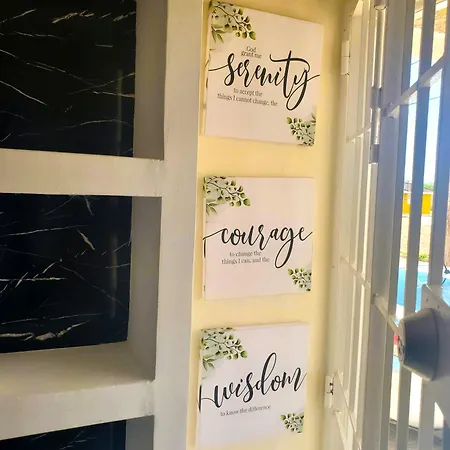 God
grant me
serenity
to accept the
things I cannot change, the
courage
to change the
things I can, and the
wisdom
to know the difference